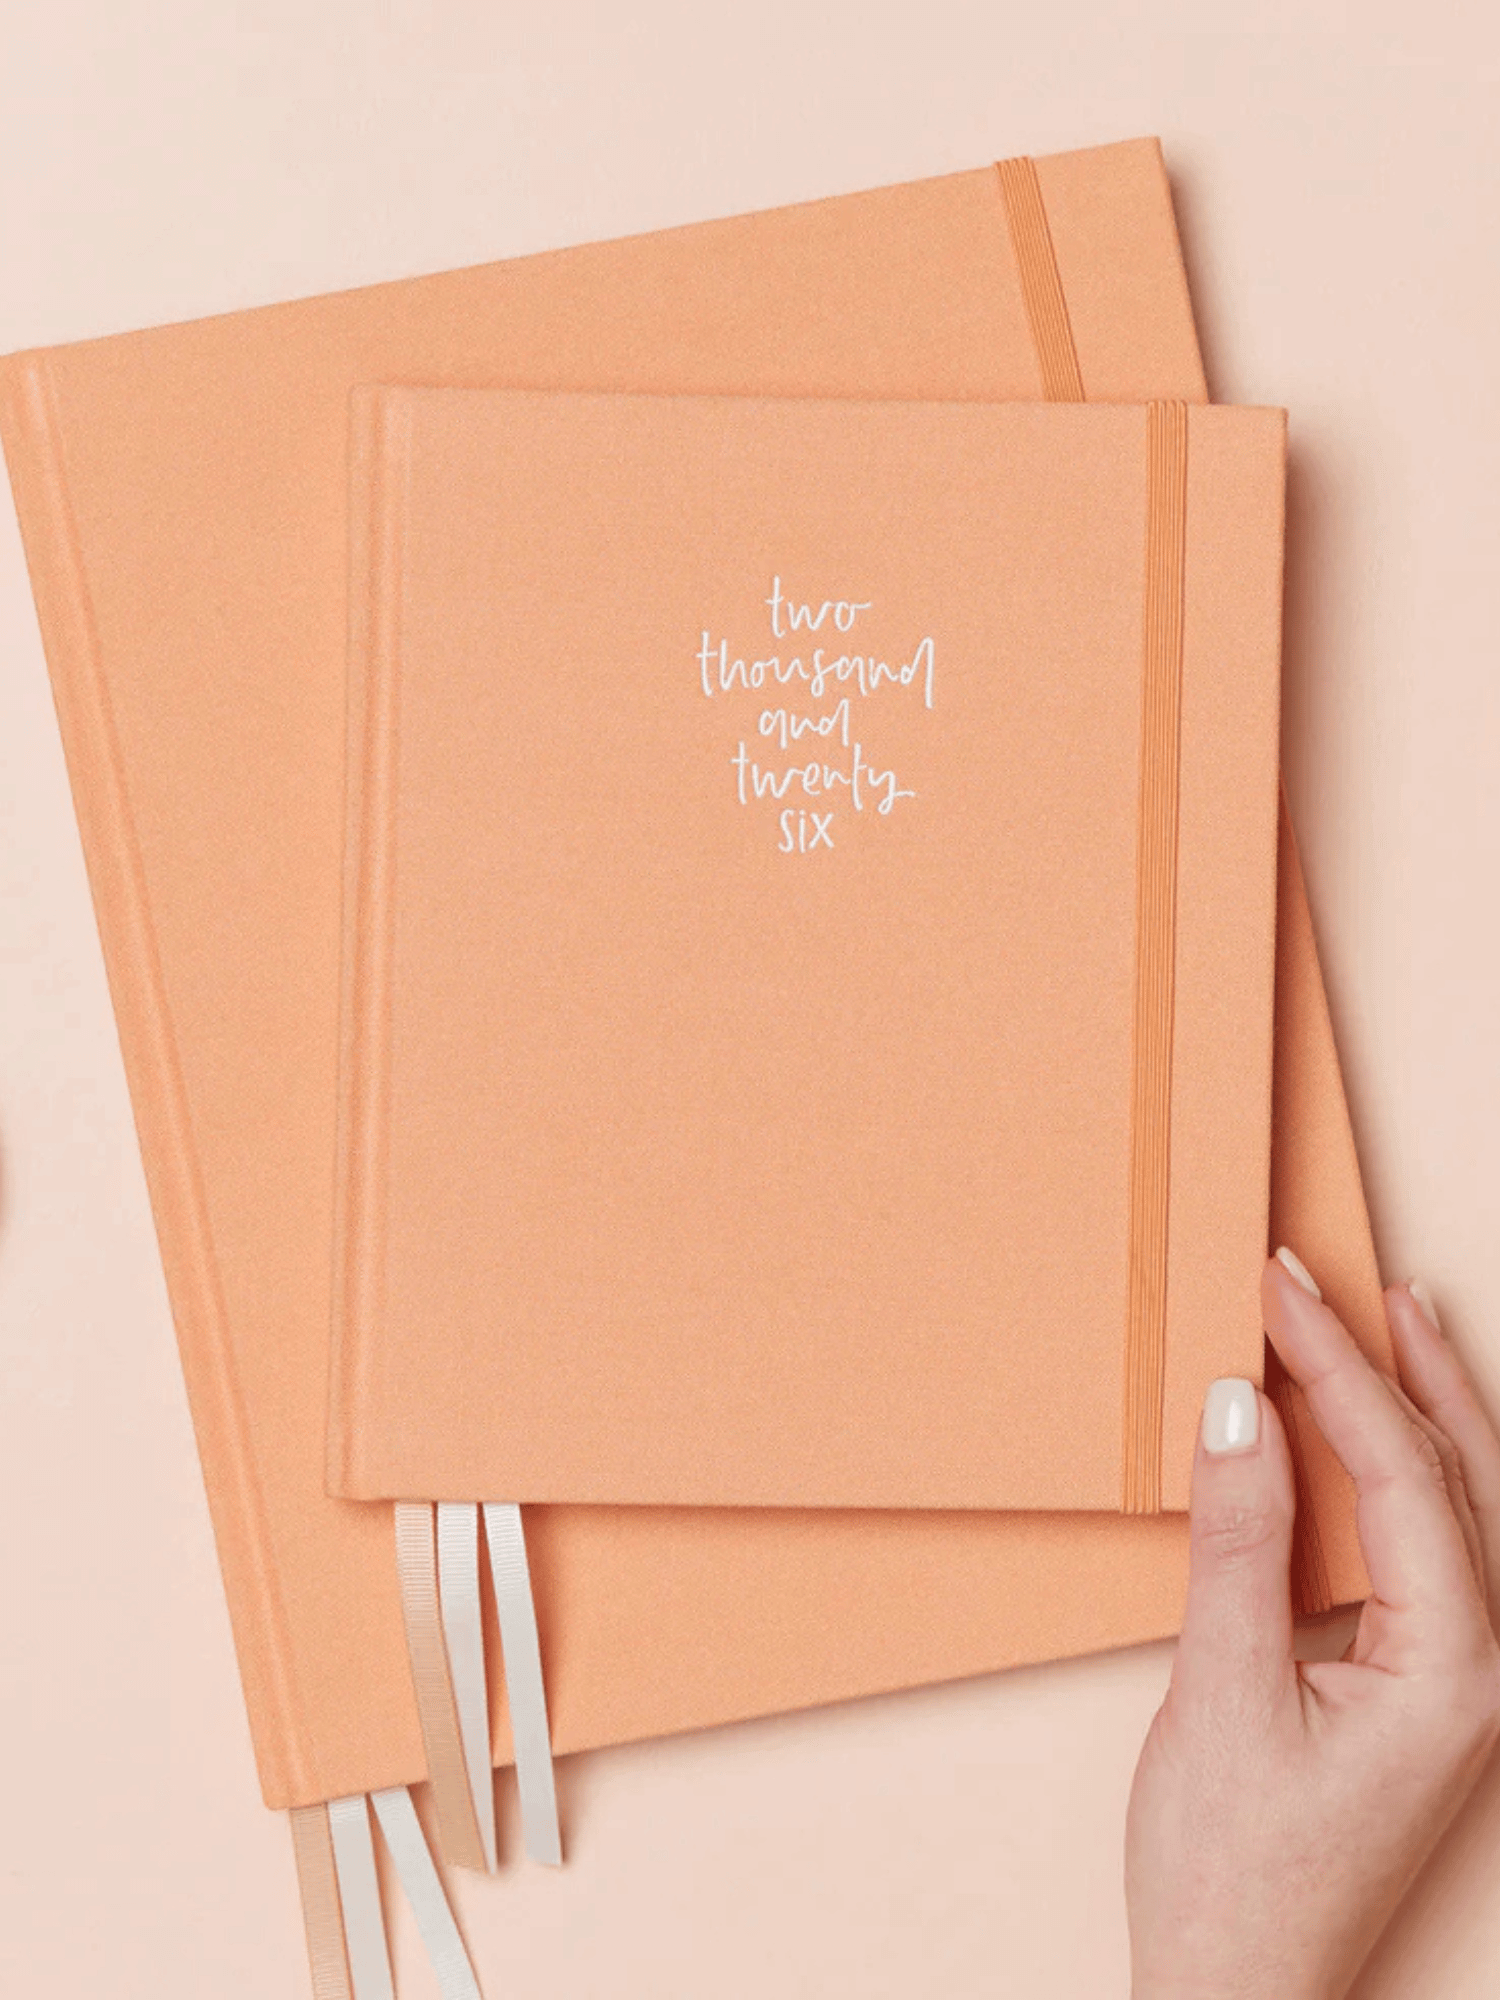 two
thousand
and
twenty
six